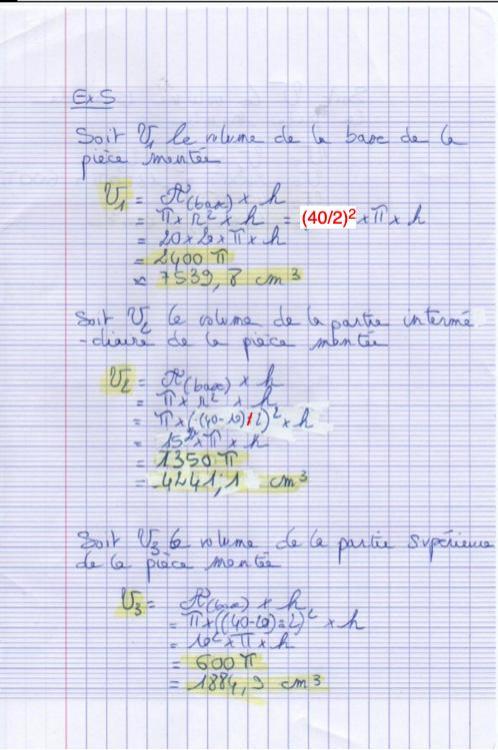 Ex 5
Soit V₁ le volume de la base de la
pièce montée
V₁ = A(base) × h
= π × r² × h = (40/2)² × π × h
= 20 × 20 × π × h
= 2400 π
≈ 7539,8 cm³
Soit V₂ le volume de la partie intermé
-diaire de la pièce montée
V₂ = A(base) × h
= π × r² × h
= π × ((40-10)/2)² × h
= 15² × π × h
= 1350 π
= 4241,1 cm³
Soit V₃ le volume de la partie supérieure
de la pièce montée
V₃ = A(base) × h
= π × ((40-20)÷2)² × h
= 10² × π × h
= 600 π
= 1884,9 cm³